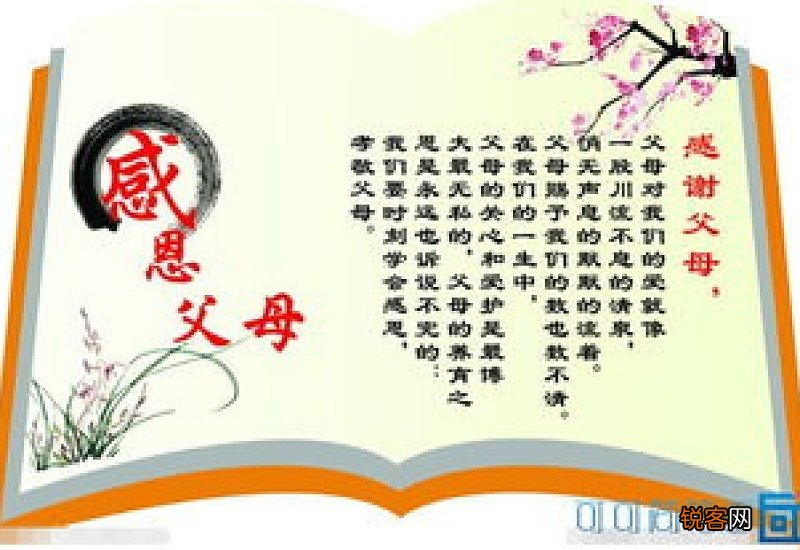 感恩父母
感谢父母，
父母对我们的爱就像
一股川流不息的清泉，
悄无声息的默默的流着。
父母赐予我们的数也数不清。
在我们的一生中，
父母的关心和爱护是最博
大最无私的，父母的养育之
恩是永远也诉说不完的：
我们要时刻学会感恩，
孝敬父母。
锐客网